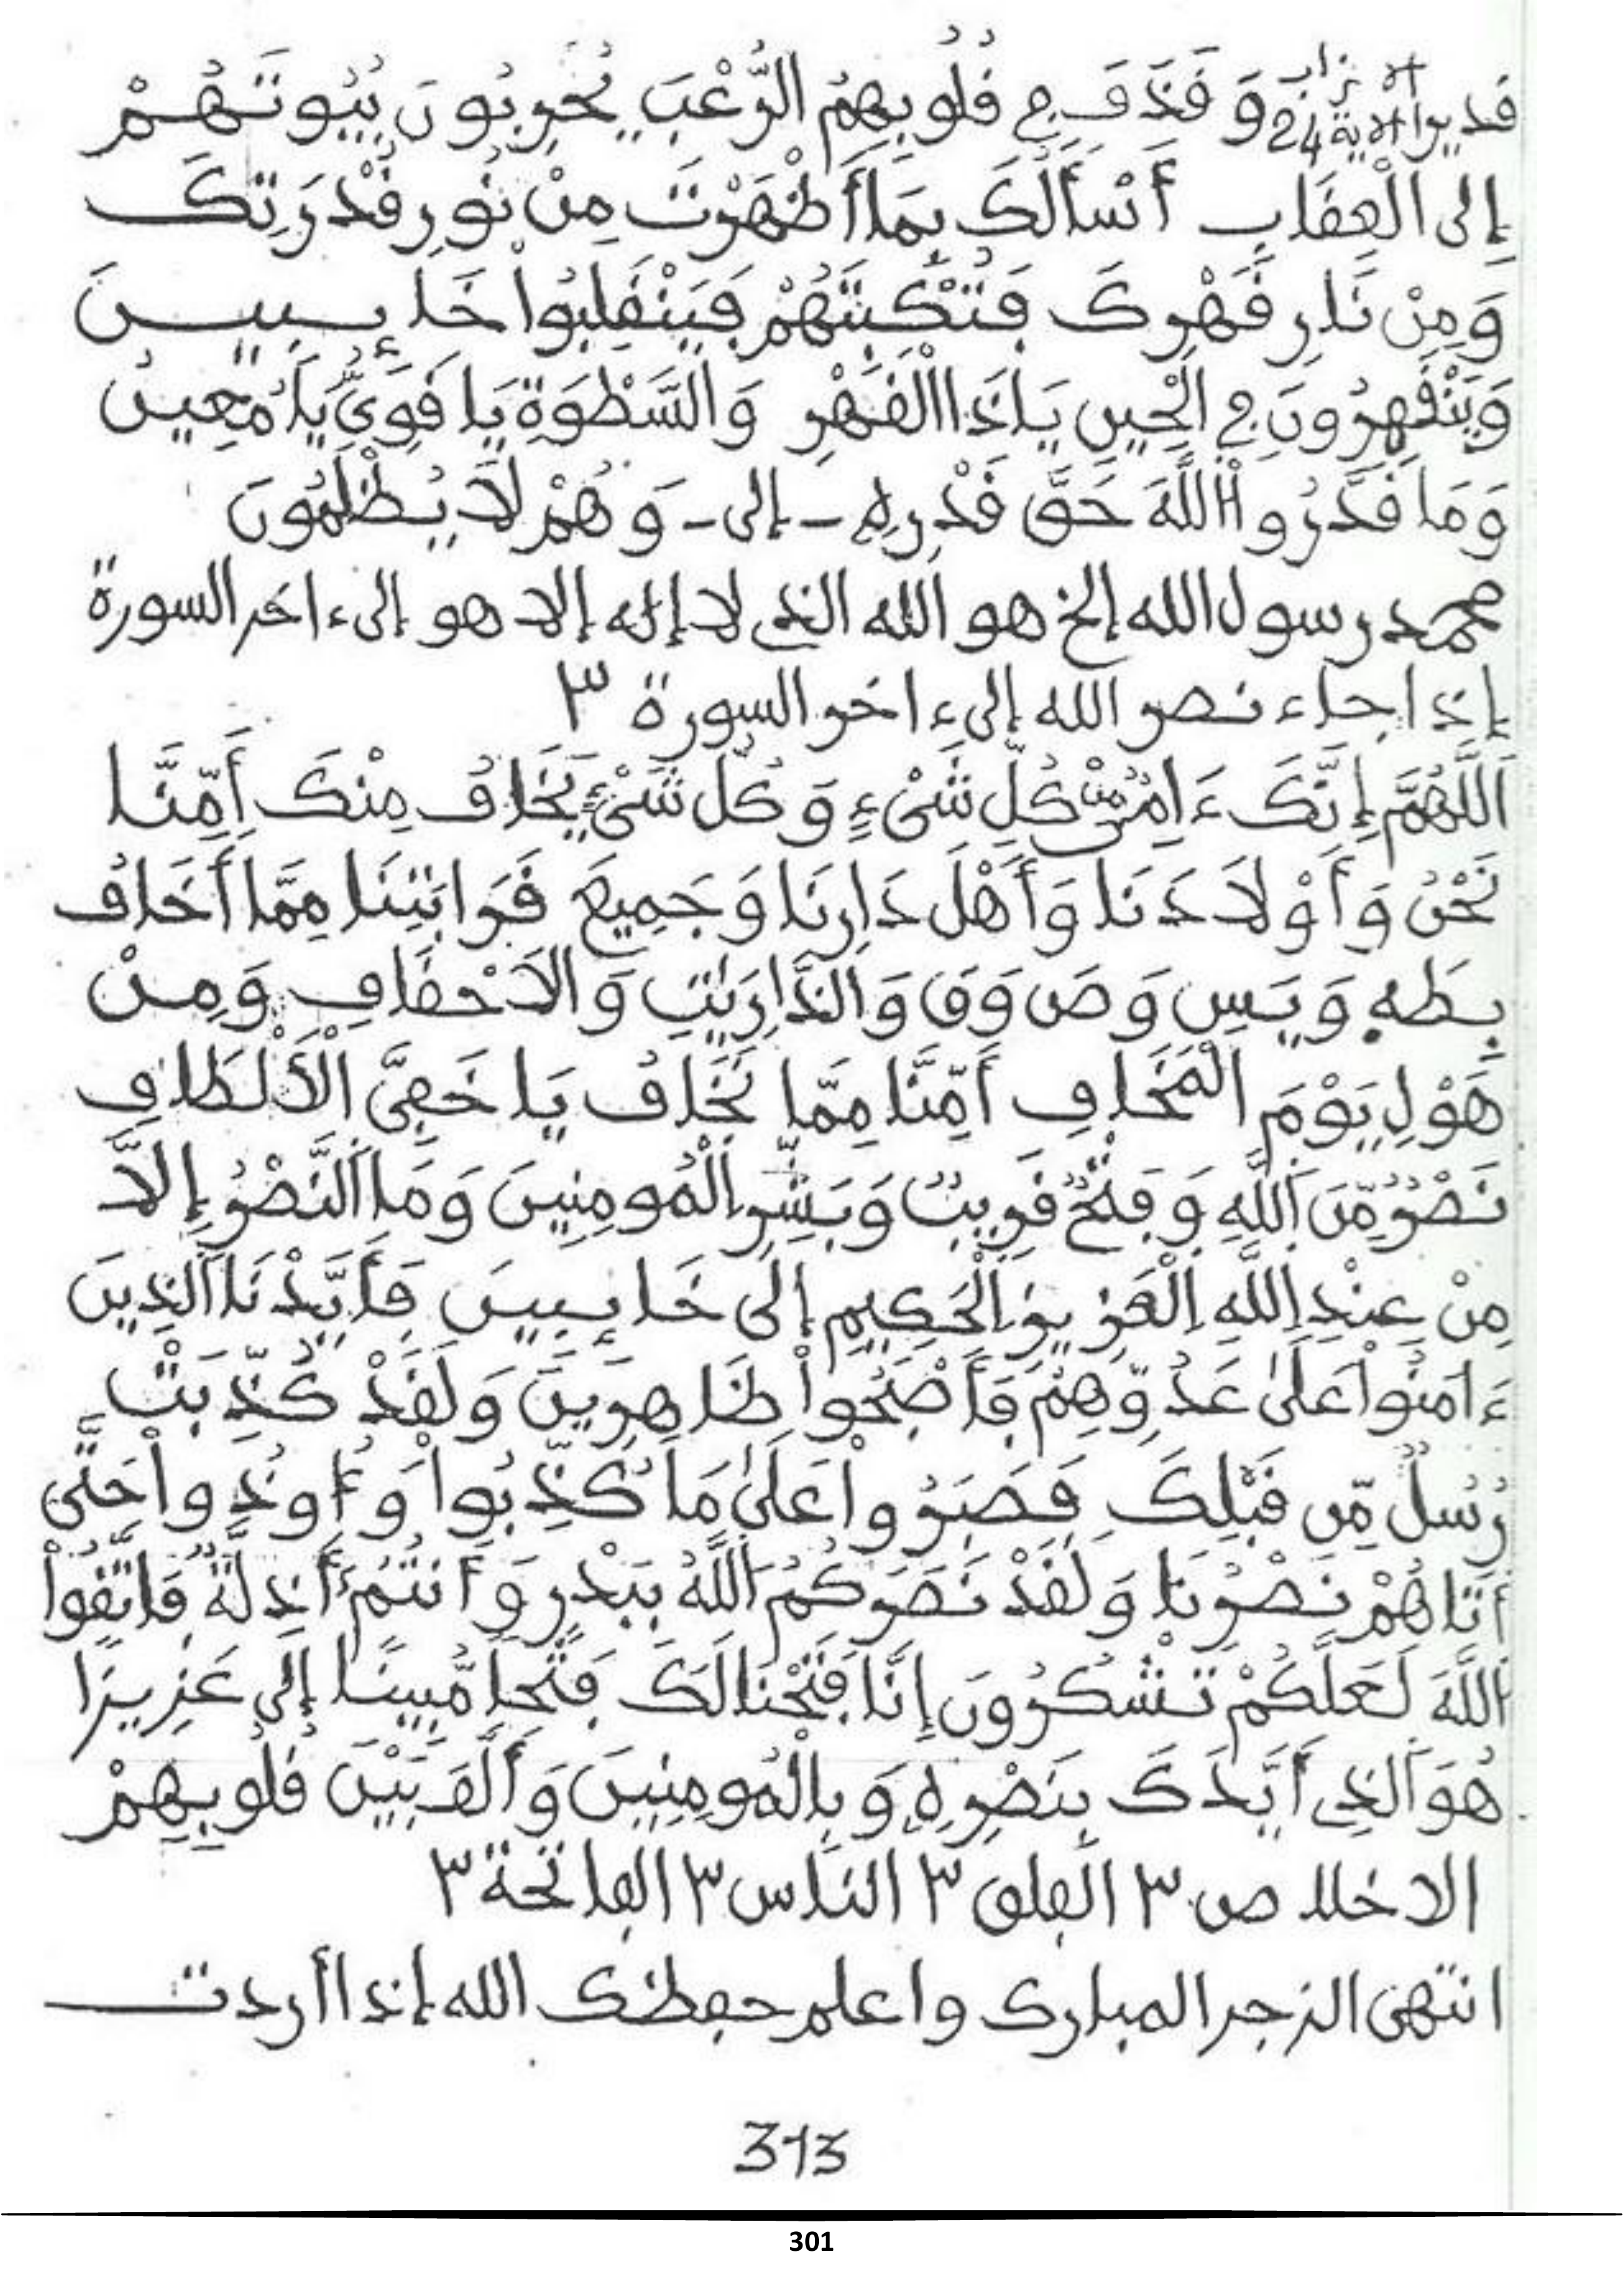 قديرا الاحزاب الاية 24 وَقَذَفَ فِي قُلُوبِهِمُ الرُّعْبَ يُخْرِبُونَ بُيُوتَهُمْ
إِلَى الْعِقَابِ أَسْأَلُكَ بِمَا أَظْهَرْتَ مِنْ نُورِ قُدْرَتِكَ
وَمِنْ نَارِ قَهْرِكَ فَتَكْبِتَهُمْ فَيَنْقَلِبُواْ خَائِبِينَ
وَيَنْقَهِرُونَ فِي الْحِينِ يَا ذَا الْقَهْرِ وَالسَّطْوَةِ يَا قَوِيُّ يَا مُعِينُ
وَمَا قَدَرُواْ اللَّهَ حَقَّ قَدْرِهِ - إلى - وَهُمْ لَا يُظْلَمُونَ
محمد رسول الله إلخ هو الله الذي لا إله إلا هو إلى ءاخر السورة
إذا جاء نصر الله إلى ءاخر السورة ٣
اَللَّهُمَّ إِنَّكَ ءَامِنٌ مِنْ كُلِّ شَيْءٍ وَكُلُّ شَيْءٍ يَخَافُ مِنْكَ أَمِّنَّا
نَحْنُ وَأَوْلَادَنَا وَأَهْلَ دَارِنَا وَجَمِيعَ قَرَابَتِنَا مِمَّا أَخَافُ
بِطَهِ وَيَسِ وَصَ وَقَ وَالذَّارِيَاتِ وَالَاحْقَافِ وَمِنْ
هَوْلِ يَوْمِ الْمَخَافِ أَمِّنَّا مِمَّا نَخَافُ يَا خَفِيَّ الْأَلْطَافِ
نَصْرٌ مِّنَ اَللَّهِ وَفَتْحٌ قَرِيبٌ وَبَشِّرِ الْمُومِنِينَ وَمَا اَلنَّصْرُ إِلَّا
مِنْ عِنْدِ اِللَّهِ اِلْعَزِيزِ اِلْحَكِيمِ إلى خَائِبِينَ فَأَيَّدْنَا اَلذِينَ
ءَامَنُواْ عَلَىٰ عَدُوِّهِمْ فَأَصْبَحُواْ ظَاهِرِينَ وَلَقَدْ كُذِّبَتْ
رُسُلٌ مِّن قَبْلِكَ فَصَبَرُواْ عَلَىٰ مَا كُذِّبُواْ وَأُوذُواْ حَتَّىٰ
أَتَاهُمْ نَصْرُنَا وَلَقَدْ نَصَرَكُمُ اَللَّهُ بِبَدْرٍ وَأَنتُمْ أَذِلَّةٌ فَاتَّقُواْ
اَللَّهَ لَعَلَّكُمْ تَشْكُرُونَ إِنَّا فَتَحْنَا لَكَ فَتْحًا مُّبِينًا إلى عَزِيزًا
هُوَ اَلذِي أَيَّدَكَ بِنَصْرِهِ وَبِالْمُومِنِينَ وَأَلَّفَ بَيْنَ قُلُوبِهِمْ
الاخلاص ٣ الفلق ٣ الناس ٣ الفاتحة ٣
انتهى الزجر المبارك واعلم حفظك الله إذا أردت
313
301